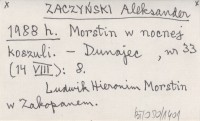 x ZACZYŃSKI Aleksander x
1988 h. Morstin w nocnej
koszuli. - Dunajec, nr 33
(14 VIII): 8.
Ludwik Hieronim Morstin
w Zakopanem.